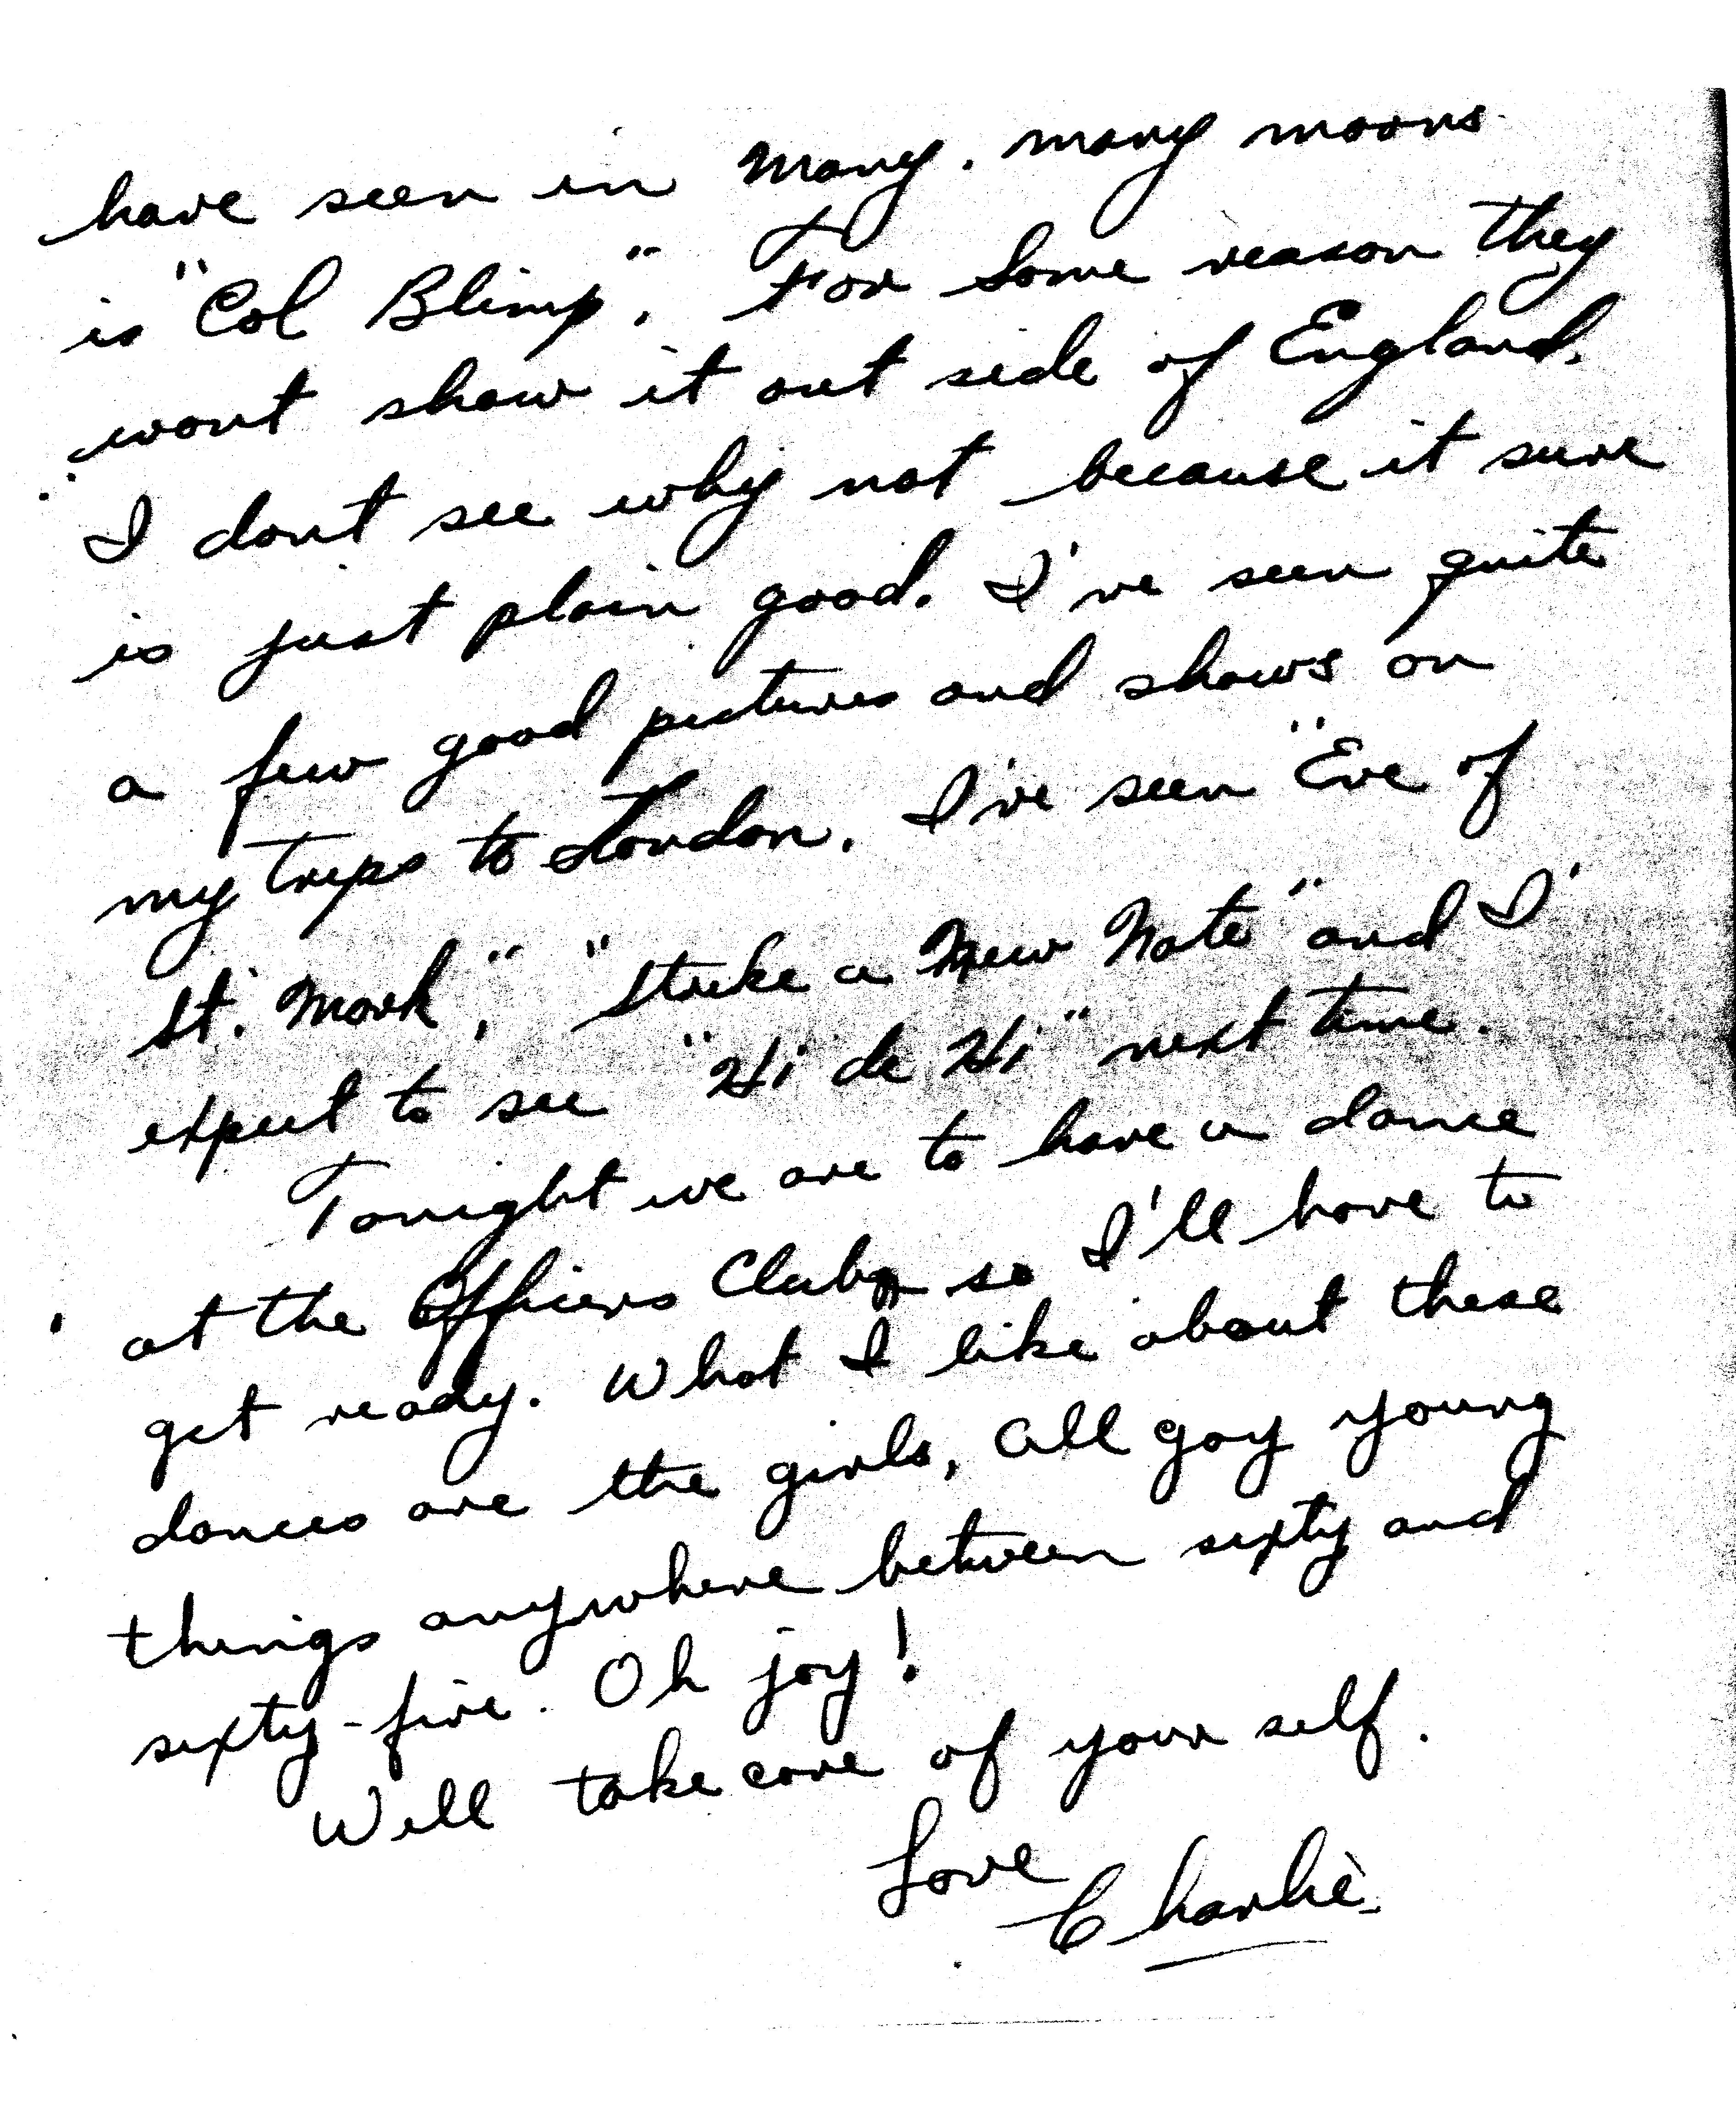 have seen in Many. many moons
is "Col Blimp". For some reason they
wont show it out side of England.
I dont see why not because it sure
is just plain good. I've seen quite
a few good pictures and shows on
my trips to London. I've seen "Eve of
St. Mark", "Strike a New Note" and I
expect to see "Hi de Hi" next time.
Tonight we are to have a dance
at the Officers Club so I'll have to
get ready. What I like about these
dances are the girls, all gay young
things anywhere between sixty and
sixty-five. Oh joy!
Well take care of your self.
Love
Charlie